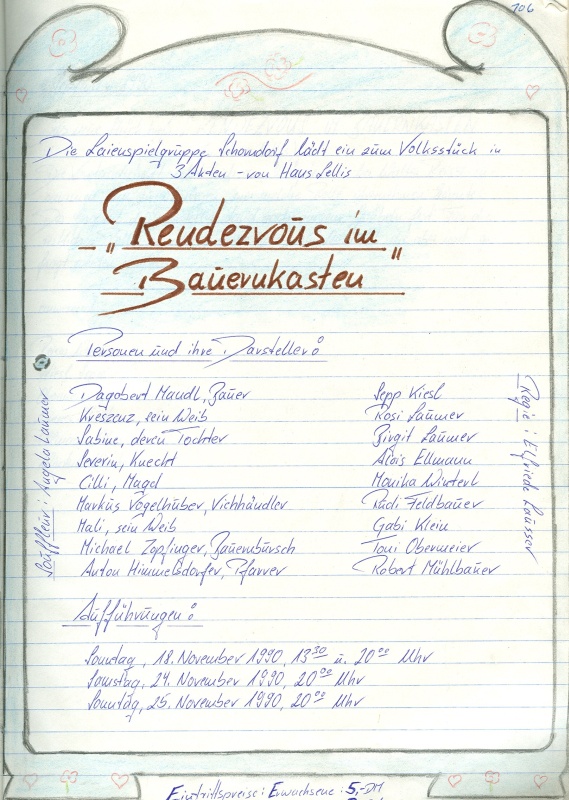 106
Die Laienspielgruppe Schorndorf lädt ein zum Volksstück in
3 Akten - von Hans Lellis
- "Rendezvous im
Bauernkasten"
Personen und ihre Darsteller:
Dagobert Mandl, Bauer Sepp Kiesl
Kreszenz, sein Weib Rosi Laumer
Sabine, deren Tochter Birgit Laumer
Severin, Knecht Alois Ellmann
Cilli, Magd Monika Winterl
Markus Vogelhuber, Viehhändler Rudi Feldbauer
Mali, sein Weib Gabi Klein
Michael Zopfinger, Bauernbursch Toni Obermeier
Anton Himmelsdorfer, Pfarrer Robert Mühlbauer
Souffleur: Angela Laumer
Regie: Elfriede Lausser
Aufführungen:
Sonntag, 18. November 1990, 13 30 u. 20 00 Uhr
Samstag, 24. November 1990, 20 00 Uhr
Sonntag, 25. November 1990, 20 00 Uhr
Eintrittspreise: Erwachsene: 5,-DM